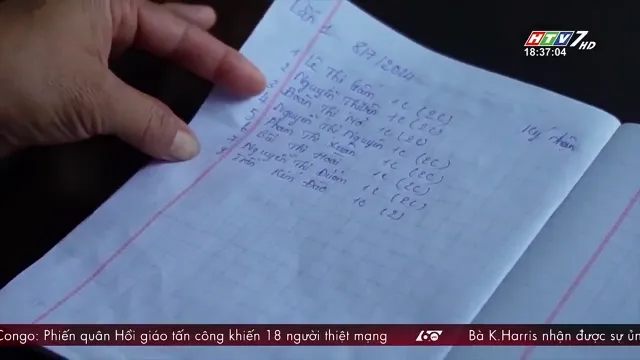 HTV7 HD
18:37:04
Lần 1
8/7/2024
Ký nhận
1 Lê Thị Gấm 1c (2C)
2 Nguyễn Thị 1c (2C)
3 Đoàn Thị 1c (2C)
4 Nguyễn Thị Nguyên 1c (2C)
5 Phạm Thị Xuân 1c (2C)
6 Thị Hoài 1c (2C)
7 Nguyễn Thị 1c (2C)
8 Trần Kim Đào 1c (2)
Congo: Phiến quân Hồi giáo tấn công khiến 18 người thiệt mạng
60
Bà K.Harris nhận được sự ủn